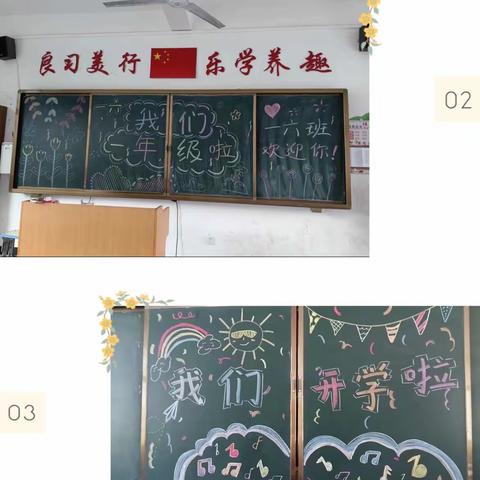 良习美行 乐学养趣
我们 一六班
一年级啦 欢迎你!
02
03
我们 开学啦